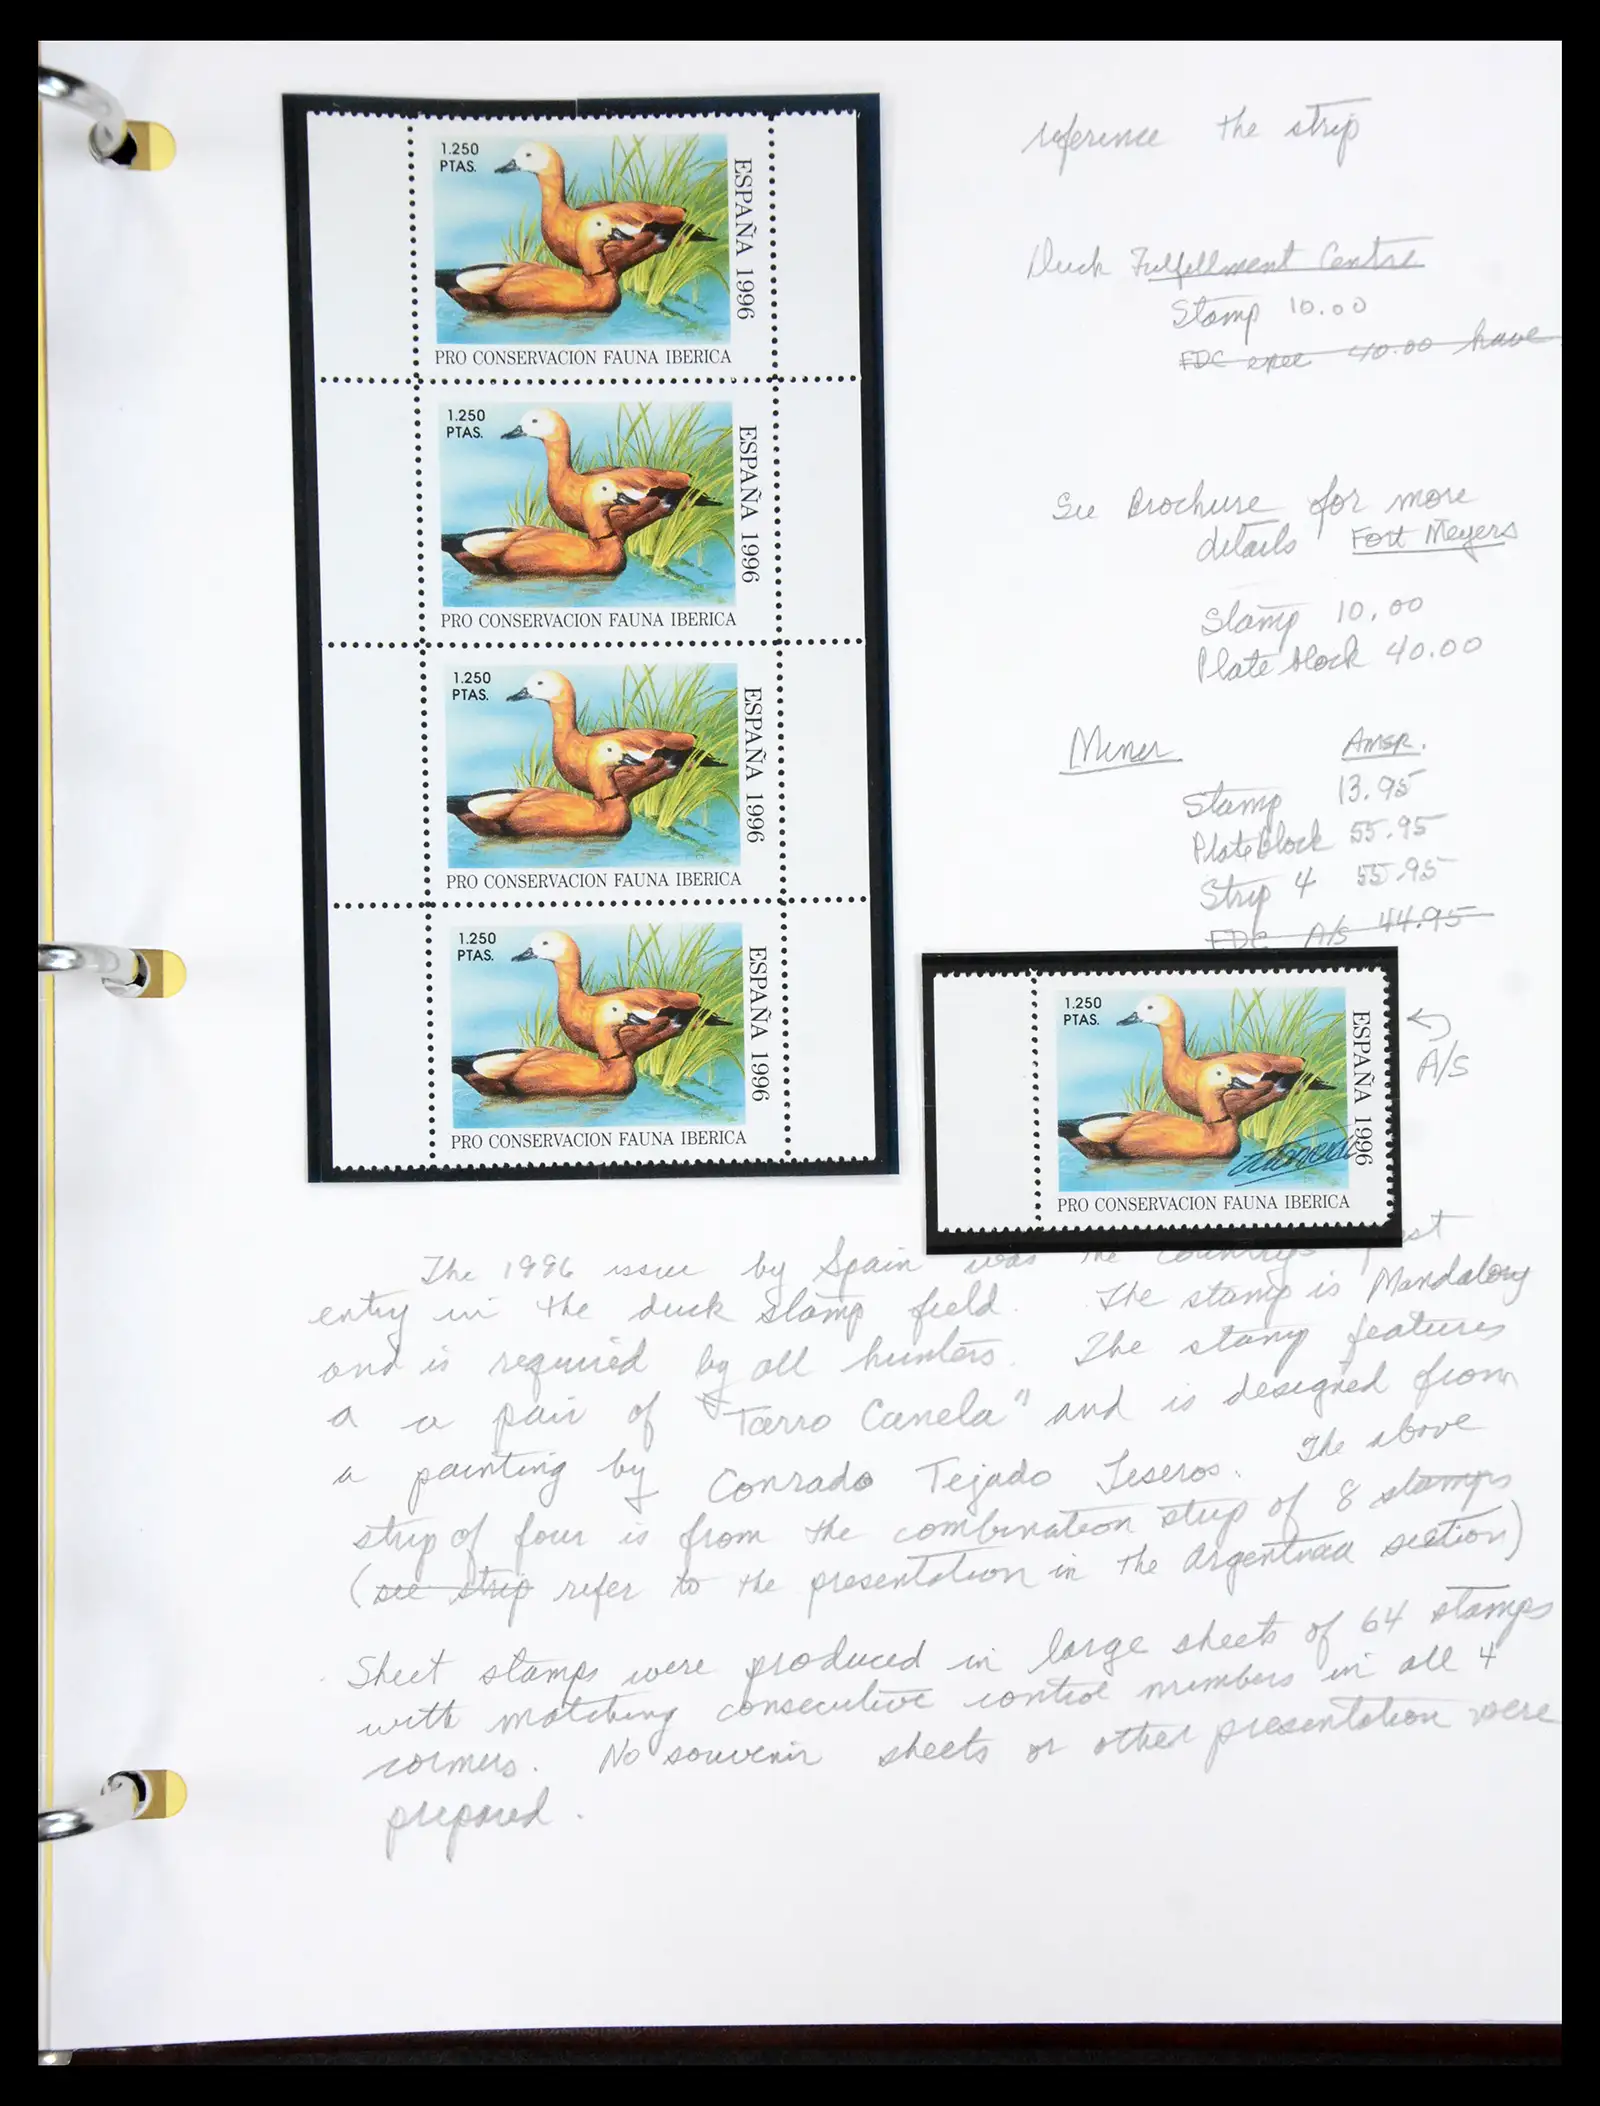 1.250
PTAS.
ESPAÑA 1996
PRO CONSERVACION FAUNA IBERICA
1.250
PTAS.
ESPAÑA 1996
PRO CONSERVACION FAUNA IBERICA
1.250
PTAS.
ESPAÑA 1996
PRO CONSERVACION FAUNA IBERICA
1.250
PTAS.
ESPAÑA 1996
PRO CONSERVACION FAUNA IBERICA
reference the strip
Duck Fulfellment Centre
Stamp 10.00
FDC 40.00 have
See Brochure for more
details Fort Meyers
Stamp 10.00
Plate block 40.00
AMSR.
Stamp 13.95
Plate Block 55.95
Strip 4 55.95
FDC A/S 44.95
1.250
PTAS.
ESPAÑA 1996
PRO CONSERVACION FAUNA IBERICA
A/S
The 1996 issue by Spain was the country's
entry in the duck stamp field. The stamp is Mandatory
and is required by all hunters. The stamp features
a a pair of "Tarro Canela" and is designed from
a painting by Conrado Tejado Teseros. The above
strip of four is from the combination strip of 8 stamps
(see strip refer to the presentation in the Argentina section)
Sheet stamps were produced in large sheets of 64 stamps
with matching consecutive control numbers in all 4
corners. No souvenir sheets or other presentation were
prepared.